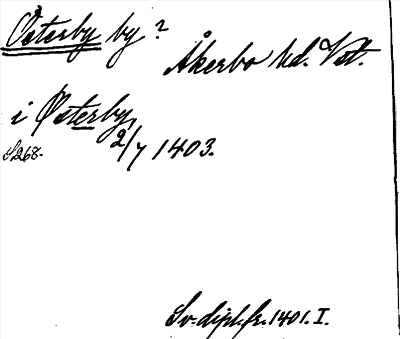 Österby by?
Åkerbo hd. Vstl.
i Østerby,
S 268. 2/7 1403.
Sv. dipl. fr. 1401. I.